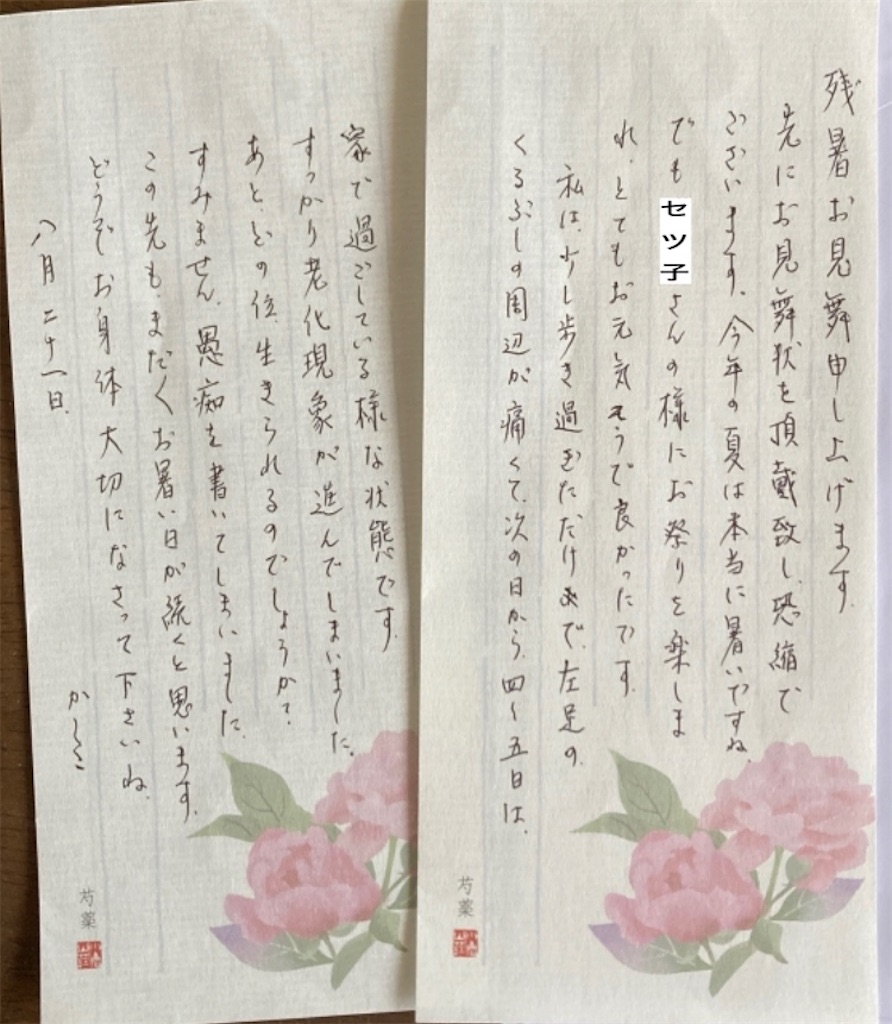 残暑お見舞申し上げます。
先にお見舞状を頂戴致し、恐縮で
ございます。今年の夏は本当に暑いですね。
でもセツ子さんの様にお祭りを楽しま
れ、とてもお元気そうで良かったです。
私は、少し歩き過ぎただけで、左足の
くるぶしの周辺が痛くて、次の日から、四〜五日は、
芍薬
家で過ごしている様な状態です。
すっかり老化現象が進んでしまいました。
あと、どの位、生きられるのでしょうか？
すみません、愚痴を書いてしまいました。
この先も、まだ〱お暑い日が続くと思います。
どうぞお身体大切になさって下さいね。
かしこ
八月二十一日、
芍薬